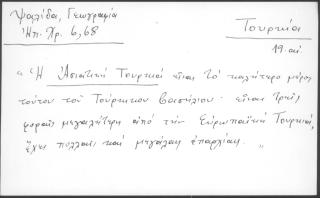 Ψαλίδα, Γεωγραφία
Ηπ. Χρ. 6, 68
Τουρκία
19. αι
"Η Ασιατική Τουρκιά είναι το καλήτερο μέρος
τούτου του Τούρκικου βασιλίου· είναι τρείς
φοραίς μεγαλήτερη από την Ευρωπαϊκή Τουρκιά,
έχει πολλαίς και μεγάλαις επαρχίαις. "